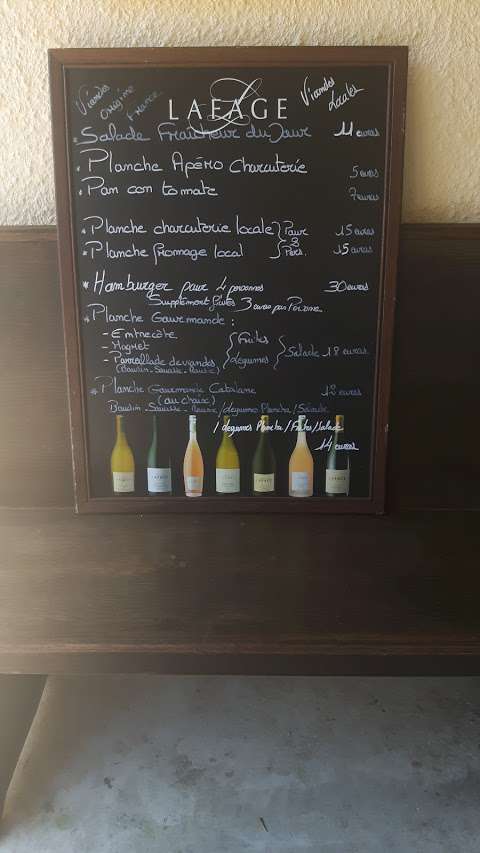 Viandes Origine France
LAFAGE
Viandes Locales
* Salade Fraîcheur du Jour 11 euros
* Planche Apéro Charcuterie 5 euros
* Pan con tomate 7 euros
* Planche charcuterie locale } Pour 15 euros
* Planche fromage local } 3 Pers. 15 euros
* Hamburger pour 4 personnes 30 euros
Supplément frites 3 euros par Personne
* Planche Gourmande :
- Entrecôte
- Magret { Frites
- Parrallade de viandes { légumes } Salade 18 euros
(Boudin - Saucisse - )
* Planche Gourmande Catalane 12 euros
(au choix)
Boudin - Saucisse - / légumes Plancha / Salade
/ légumes Plancha / Frites / Salade
14 euros